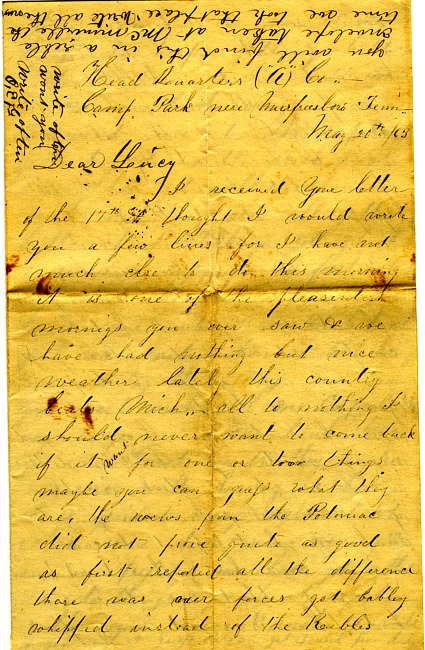 Head Quarters (A) Co -
Camp Park nere Murfresboro Tenn -
May 20th /63
Dear Lucy
I received Your letter
of the 17th & thought I would write
you a few lines for I have not
much else to do this morning
it is one of the pleasentest
mornigs you ever saw & we
have had nothing but nice
weather lately this country
beats Mich, - all to nothing I
should never want to come back
if it want for one or two things
maybe you can guess what they
are, the news from the Potomac
did not prove quite as good
as first reported all the difference
there was ouer forces got babley
whipped instead of the Rebbles
you will find this in a rebble
envelope taken at McMinnville the
time we took that place write all the news
write often
wont you
Write often